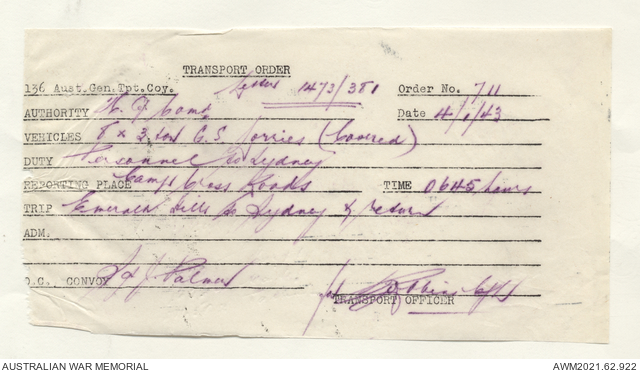 TRANSPORT ORDER
136 Aust.Gen.Tpt.Coy. Letter 1473/381 Order No. 711
AUTHORITY Camp Date 4/1/43
VEHICLES 8 x 3 ton G.S. lorries (Covered)
DUTY Personnel to Sydney
REPORTING PLACE Camp Cross Roads TIME 0645 hours
TRIP Emerald Hills to Sydney & return
ADM.
O.C. CONVOY Palmer
TRANSPORT OFFICER
AUSTRALIAN WAR MEMORIAL AWM2021.62.922